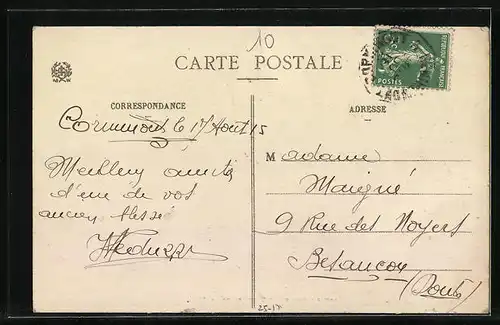 10
CARTE POSTALE
CORRESPONDANCE
ADRESSE
REPUBLIQUE FRANÇAISE
POSTES
le 17 Août 15
Madame
Meilleurs amitiés
d'un de vos
anciens blessé
Maigné
9 Rue des Noyers
Besançon
(Doubs)
25-17